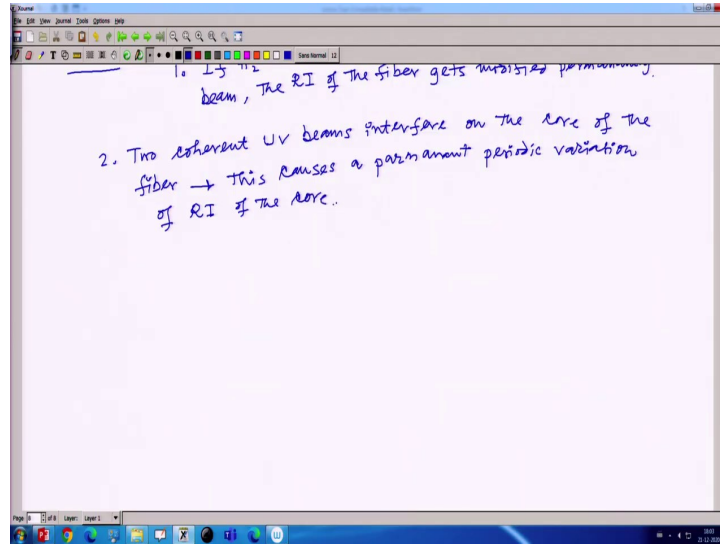 Xournal
File Edit View Journal Tools Options Help
Sans Normal 12
1. If
beam, The RI of The fiber gets modified
2. Two coherent UV beams interfere on The core of The
fiber → This causes a parmanant periodic variation
of RI of The core..
Page 8 of 8 Layer: Layer 1
18:03
21-12-2020